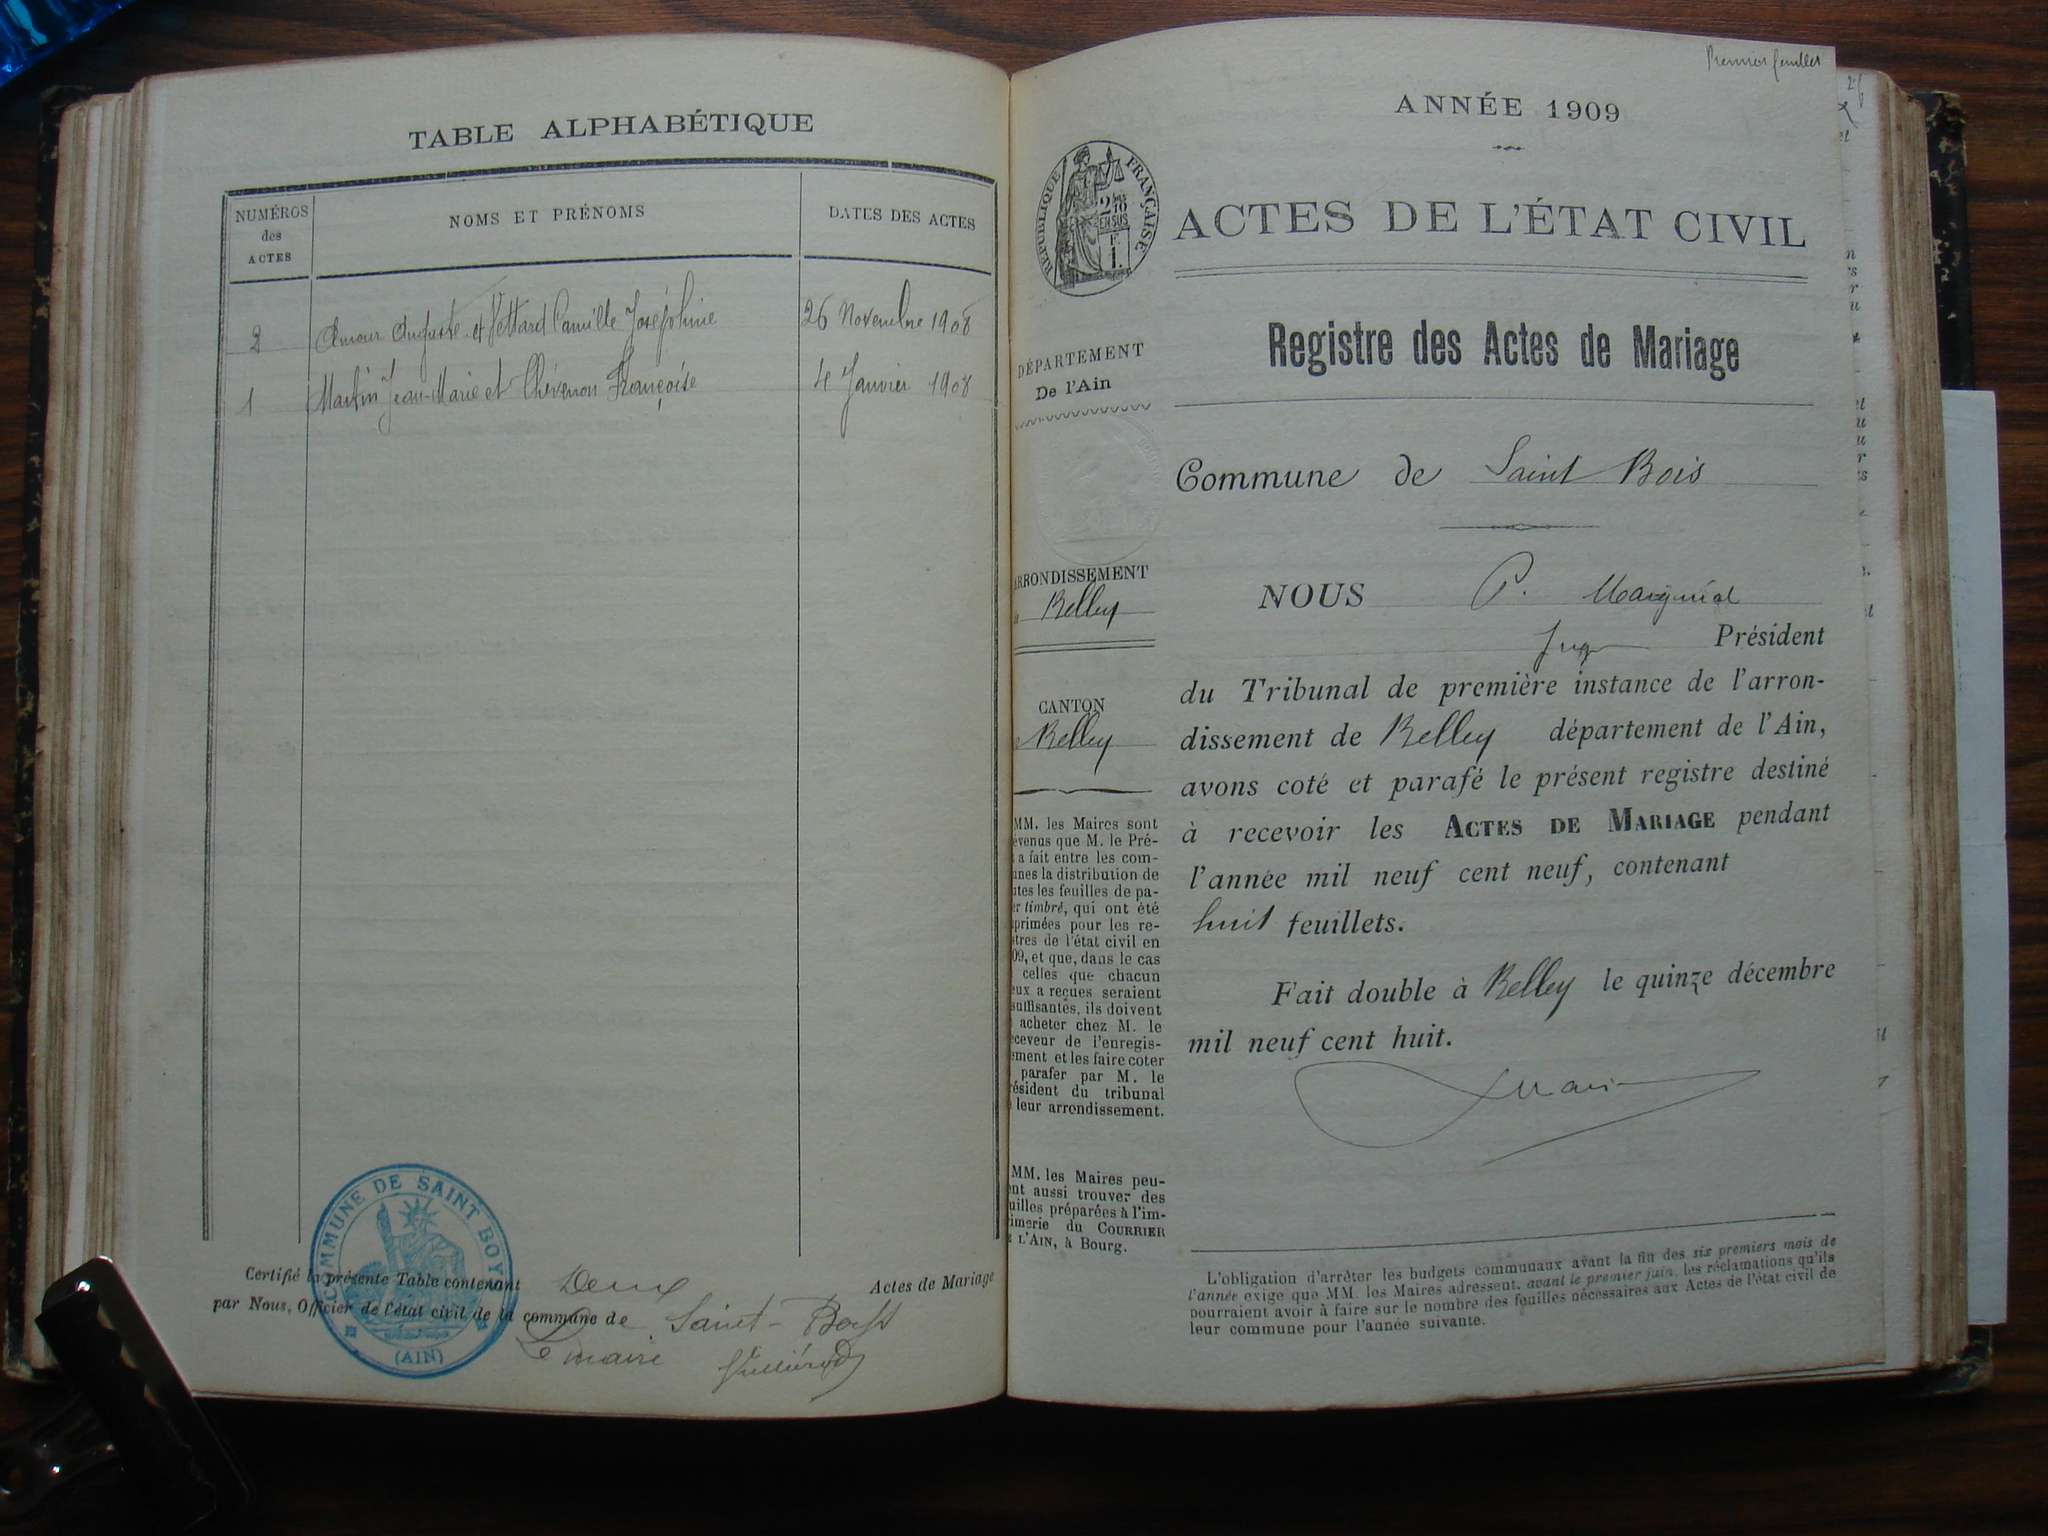 TABLE ALPHABÉTIQUE
NUMÉROS des ACTES
NOMS ET PRÉNOMS
DATES DES ACTES
2 Amour Auguste et Vettard Camille Joséphine 26 Novembre 1908
1 Martin Jean-Marie et Chévenon Françoise 4 Janvier 1908
COMMUNE DE SAINT BOYS
(AIN)
Certifié la présente Table contenant Deux Actes de Mariage
par Nous, Officier de l'état civil de la commune de Saint-Boys
Le maire
Premier feuillet
ANNÉE 1909
RÉPUBLIQUE FRANÇAISE
2/10
EN SUS
F
1.
ACTES DE L'ÉTAT CIVIL
Registre des Actes de Mariage
DÉPARTEMENT
De l'Ain
Commune de Saint Bois
ARRONDISSEMENT
Belley
CANTON
Belley
MM. les Maires sont
évenus que M. le Pré-
a fait entre les com-
unes la distribution de
utes les feuilles de pa-
er timbré, qui ont été
primées pour les re-
stres de l'état civil en
09, et que, dans le cas
celles que chacun
eux a reçues seraient
suffisantes, ils doivent
acheter chez M. le
eceveur de l'enregis-
ement et les faire coter
parafer par M. le
résident du tribunal
leur arrondissement.
MM. les Maires peu-
ent aussi trouver des
uilles préparées à l'im-
imerie du COURRIER
L'AIN, à Bourg.
NOUS P.
Juge Président
du Tribunal de première instance de l'arron-
dissement de Belley département de l'Ain,
avons coté et parafé le présent registre destiné
à recevoir les ACTES DE MARIAGE pendant
l'année mil neuf cent neuf, contenant
huit feuillets.
Fait double à Belley le quinze décembre
mil neuf cent huit.
L'obligation d'arrêter les budgets communaux avant la fin des six premiers mois de
l'année exige que MM. les Maires adressent, avant le premier juin, les réclamations qu'ils
pourraient avoir à faire sur le nombre des feuilles nécessaires aux Actes de l'état civil de
leur commune pour l'année suivante.